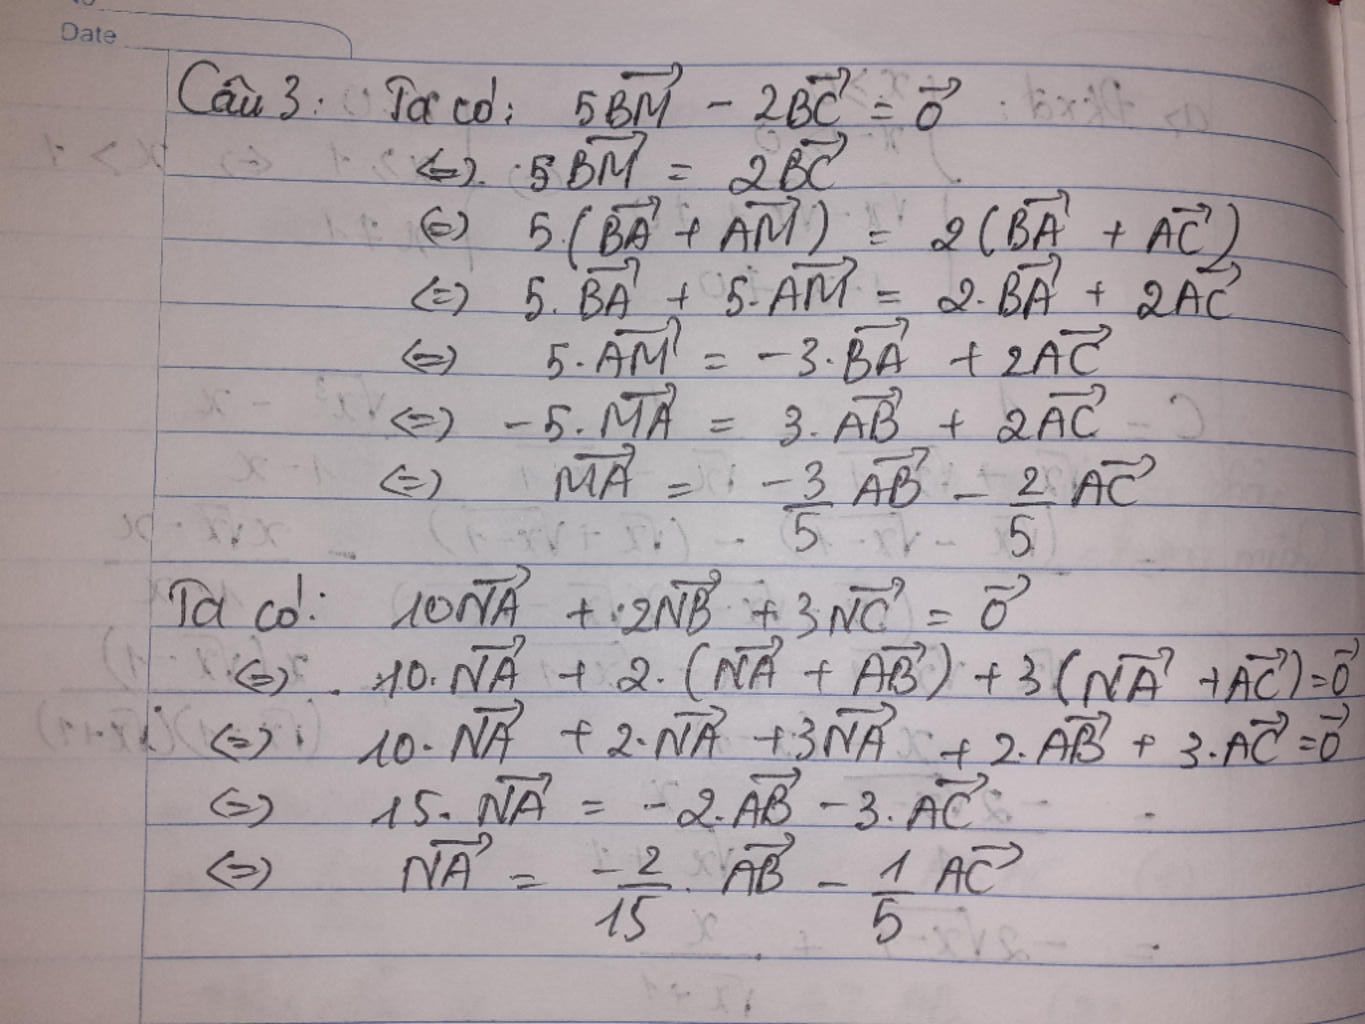 Date
Câu 3: Ta có: 5\overrightarrow{BM} - 2\overrightarrow{BC} = \overrightarrow{0}
⇔ 5\overrightarrow{BM} = 2\overrightarrow{BC}
⇔ 5.(\overrightarrow{BA} + \overrightarrow{AM}) = 2(\overrightarrow{BA} + \overrightarrow{AC})
⇔ 5.\overrightarrow{BA} + 5.\overrightarrow{AM} = 2.\overrightarrow{BA} + 2\overrightarrow{AC}
⇔ 5.\overrightarrow{AM} = -3.\overrightarrow{BA} + 2\overrightarrow{AC}
⇔ -5.\overrightarrow{MA} = 3.\overrightarrow{AB} + 2\overrightarrow{AC}
⇔ \overrightarrow{MA} = \frac{-3}{5} \overrightarrow{AB} - \frac{2}{5} \overrightarrow{AC}
Ta có: 10\overrightarrow{NA} + 2\overrightarrow{NB} + 3\overrightarrow{NC} = \overrightarrow{0}
⇔ 10.\overrightarrow{NA} + 2.(\overrightarrow{NA} + \overrightarrow{AB}) + 3(\overrightarrow{NA} + \overrightarrow{AC}) = \overrightarrow{0}
⇔ 10.\overrightarrow{NA} + 2.\overrightarrow{NA} + 3\overrightarrow{NA} + 2.\overrightarrow{AB} + 3.\overrightarrow{AC} = \overrightarrow{0}
⇔ 15.\overrightarrow{NA} = -2.\overrightarrow{AB} - 3.\overrightarrow{AC}
⇔ \overrightarrow{NA} = \frac{-2}{15}.\overrightarrow{AB} - \frac{1}{5} \overrightarrow{AC}